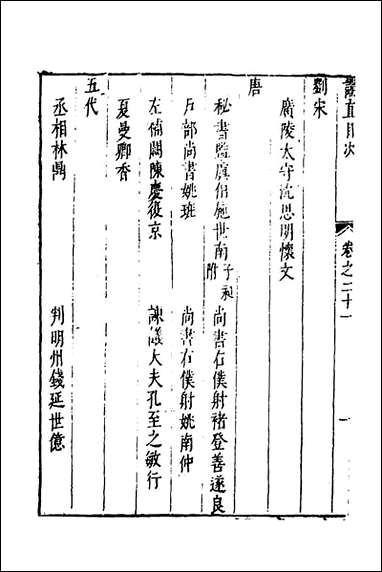 讜直目次 卷之二十一 一
劉宋
廣陵太守沈思明懷文
唐
秘書監虞伯施世南 子昶附 尚書右僕射褚登善遂良
戶部尚書姚班 尚書右僕射姚南仲
左補闕陳慶復京 諫議大夫孔至之敏行
夏曼卿香
五代
丞相林鼎 判明州錢延世億